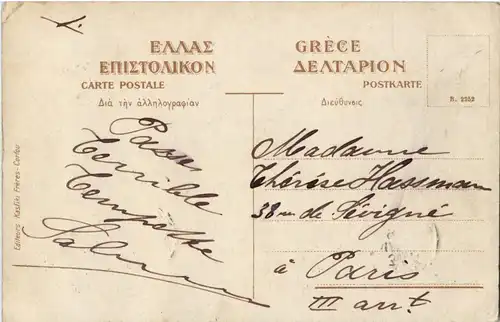 ΕΛΛΑΣ
ΕΠΙΣΤΟΛΙΚΟΝ
CARTE POSTALE
Διὰ τὴν ἀλληλογραφίαν
GRÈCE
ΔΕΛΤΑΡΙΟΝ
POSTKARTE
Διεύθυνσις
R. 2252
Editeurs Kastiki Frères-Corfou
Terrible
Tempette
Madame
Thérèse Hassman
38 rue de Sévigné
à Paris
III arrt